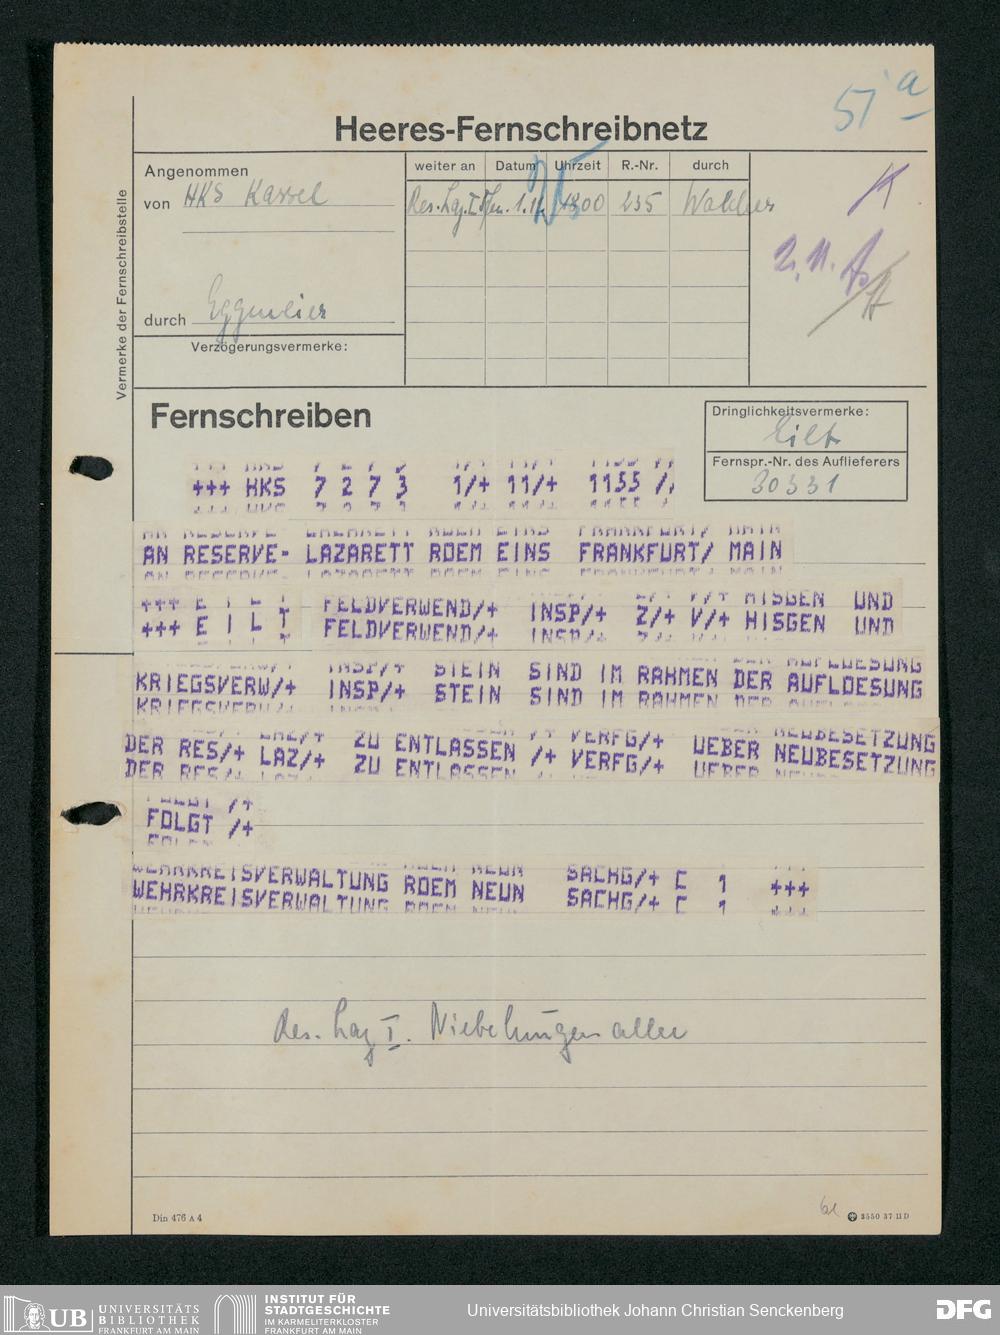 51 a
Heeres-Fernschreibnetz
Vermerke der Fernschreibstelle
Angenommen
von HKS Kassel
durch
Verzögerungsvermerke:
weiter an Datum Uhrzeit R.-Nr. durch
Res. Laz. I 1.11. 1800 235
2.11.
Fernschreiben
Dringlichkeitsvermerke:
Eilt
Fernspr.-Nr. des Auflieferers
30331
+++ HKS 7 2 7 3 1/+ 11/+ 1155 /,
AN RESERVE- LAZARETT ROEM EINS FRANKFURT/ MAIN
+++ E I L T FELDVERWEND/+ INSP/+ Z/+ V/+ HISGEN UND
KRIEGSVERW/+ INSP/+ STEIN SIND IM RAHMEN DER AUFLOESUNG
DER RES/+ LAZ/+ ZU ENTLASSEN /+ VERFG/+ UEBER NEUBESETZUNG
FOLGT /+
WEHRKREISVERWALTUNG ROEM NEUN SACHG/+ C 1 +++
Res. Laz I. Niebelungenallee
Din 476 A 4
3550 37 II D
UB UNIVERSITÄTS
BIBLIOTHEK
FRANKFURT AM MAIN
INSTITUT FÜR
STADTGESCHICHTE
IM KARMELITERKLOSTER
FRANKFURT AM MAIN
Universitätsbibliothek Johann Christian Senckenberg
DFG